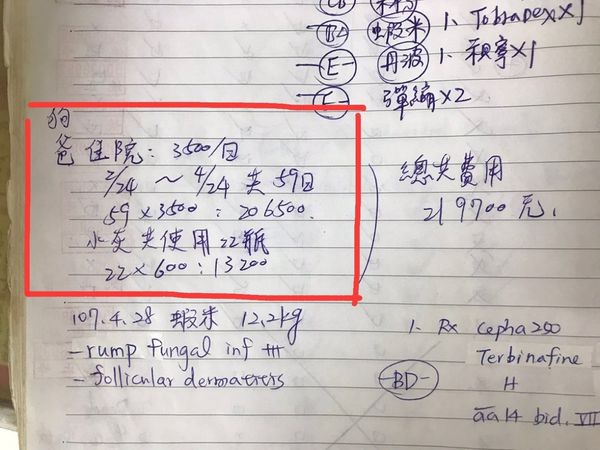 蝦米 1. Tobradex x1
E 丹波 1. 親寧x1
彈繃x2
狗
爸 住院: 3500/日
2/24 ~ 4/24 共59日
59 x 3500 : 206500.
水灰共使用22瓶
22 x 600 : 13200
總共費用
219700元.
107.4.28 蝦米 12.2kg
-rump fungal inf +++
- follicular
1. Rx Cepha 250
Terbinafine
BD
H
aa 14 bid. VII